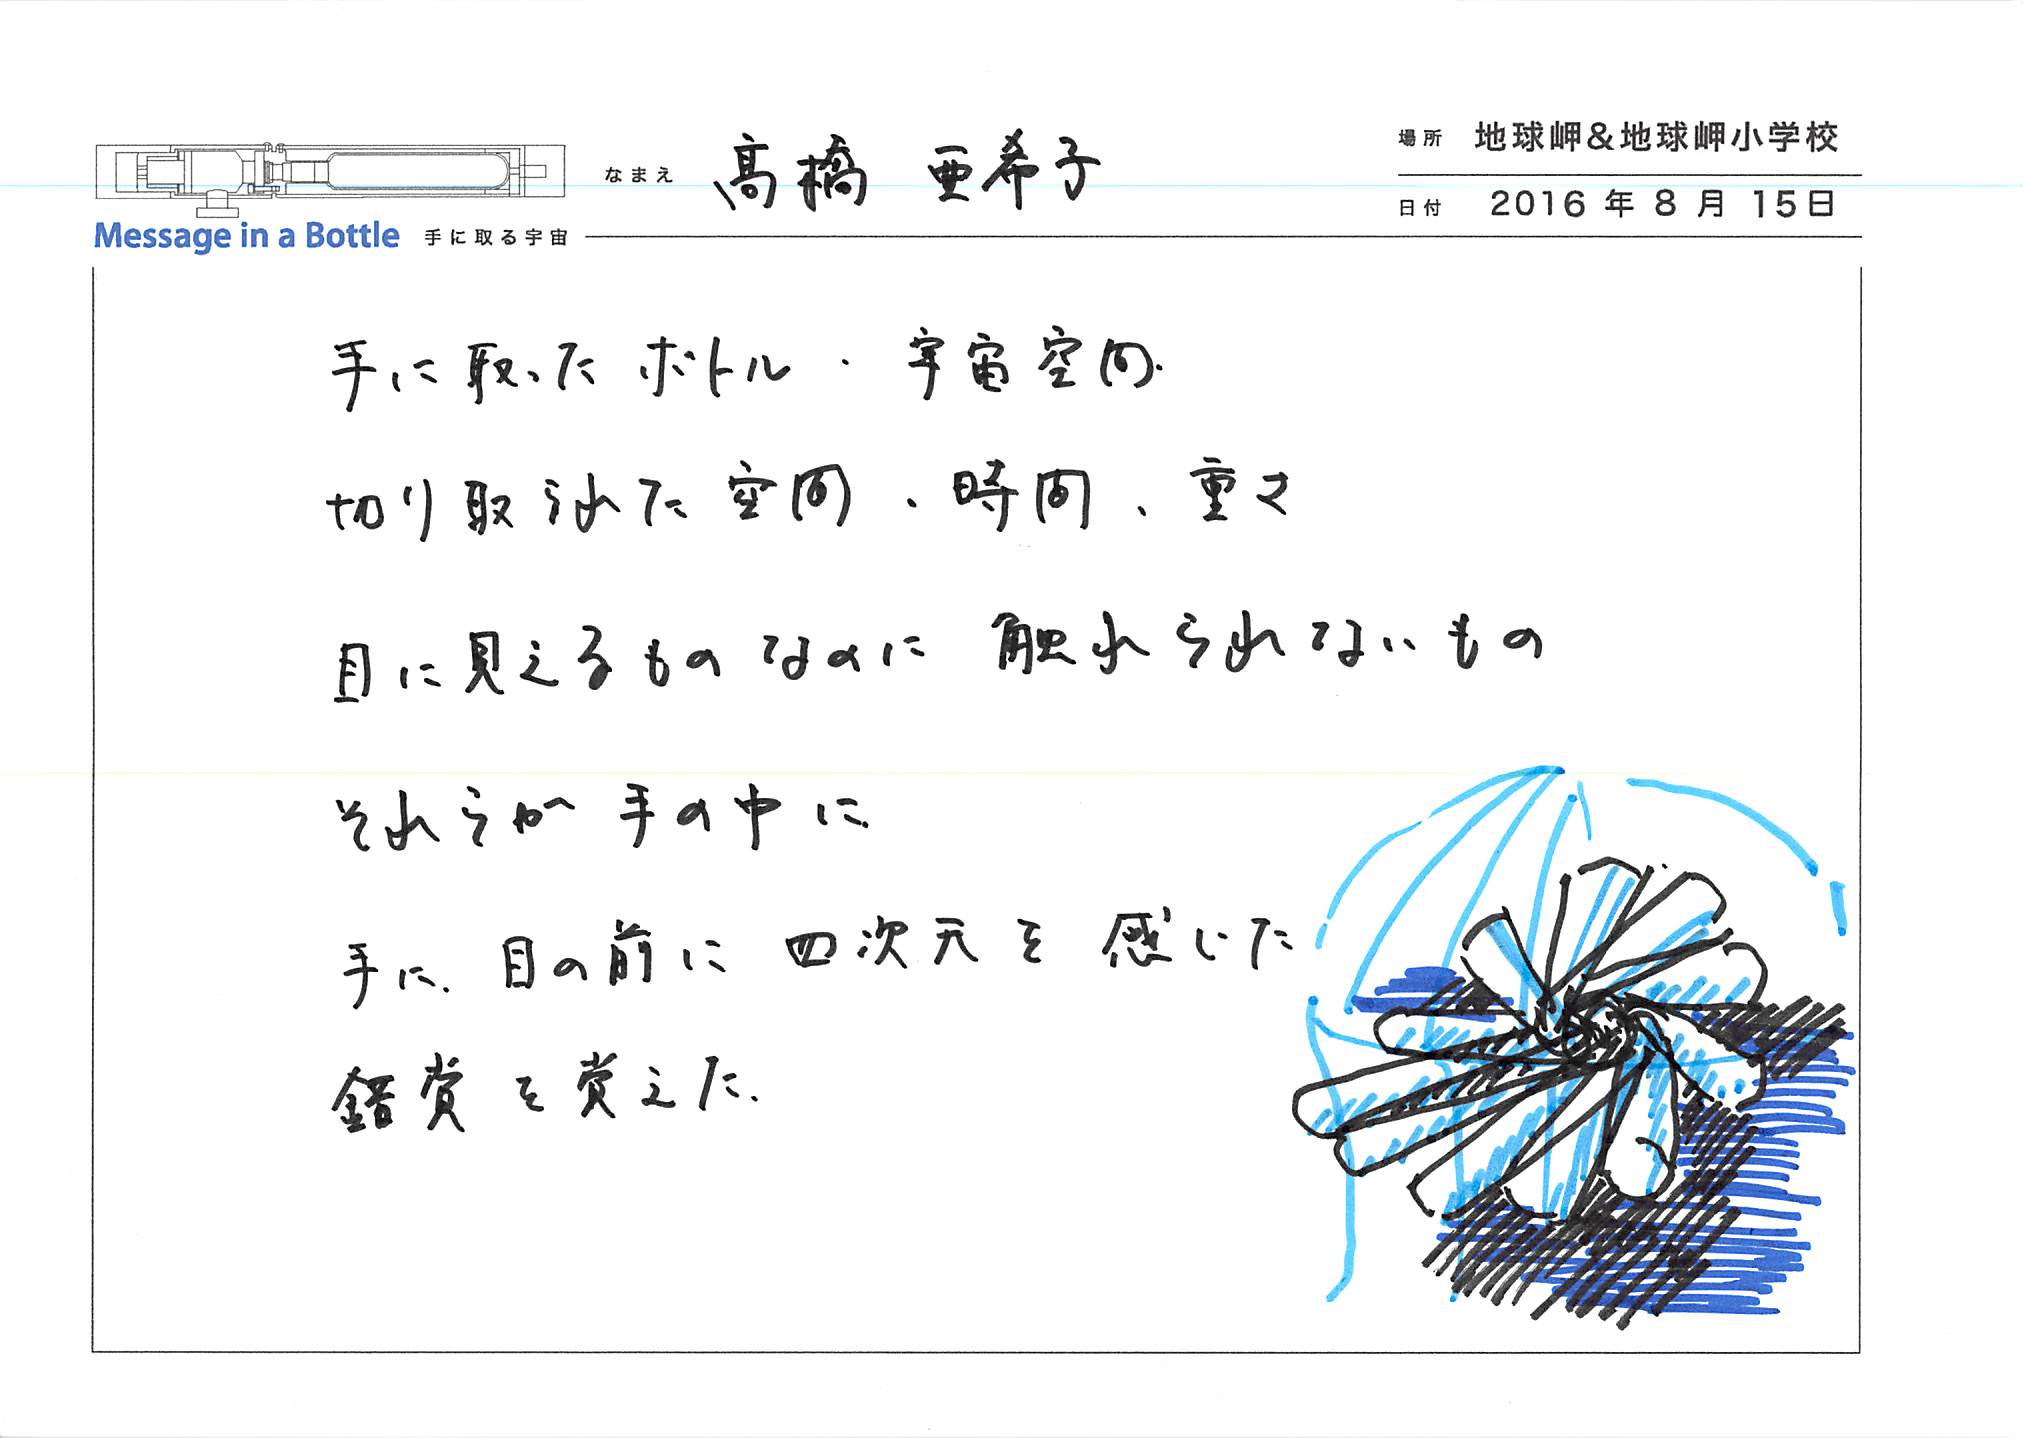 なまえ 高橋 亜希子
場所 地球岬&地球岬小学校
日付 2016年8月15日
Message in a Bottle 手に取る宇宙
手に取ったボトル・宇宙空間.
切り取られた空間、時間、重さ
目に見えるものなのに 触れられないもの
それらが手の中に.
手に.目の前に 四次元を 感じた
鑑賞を覚えた.